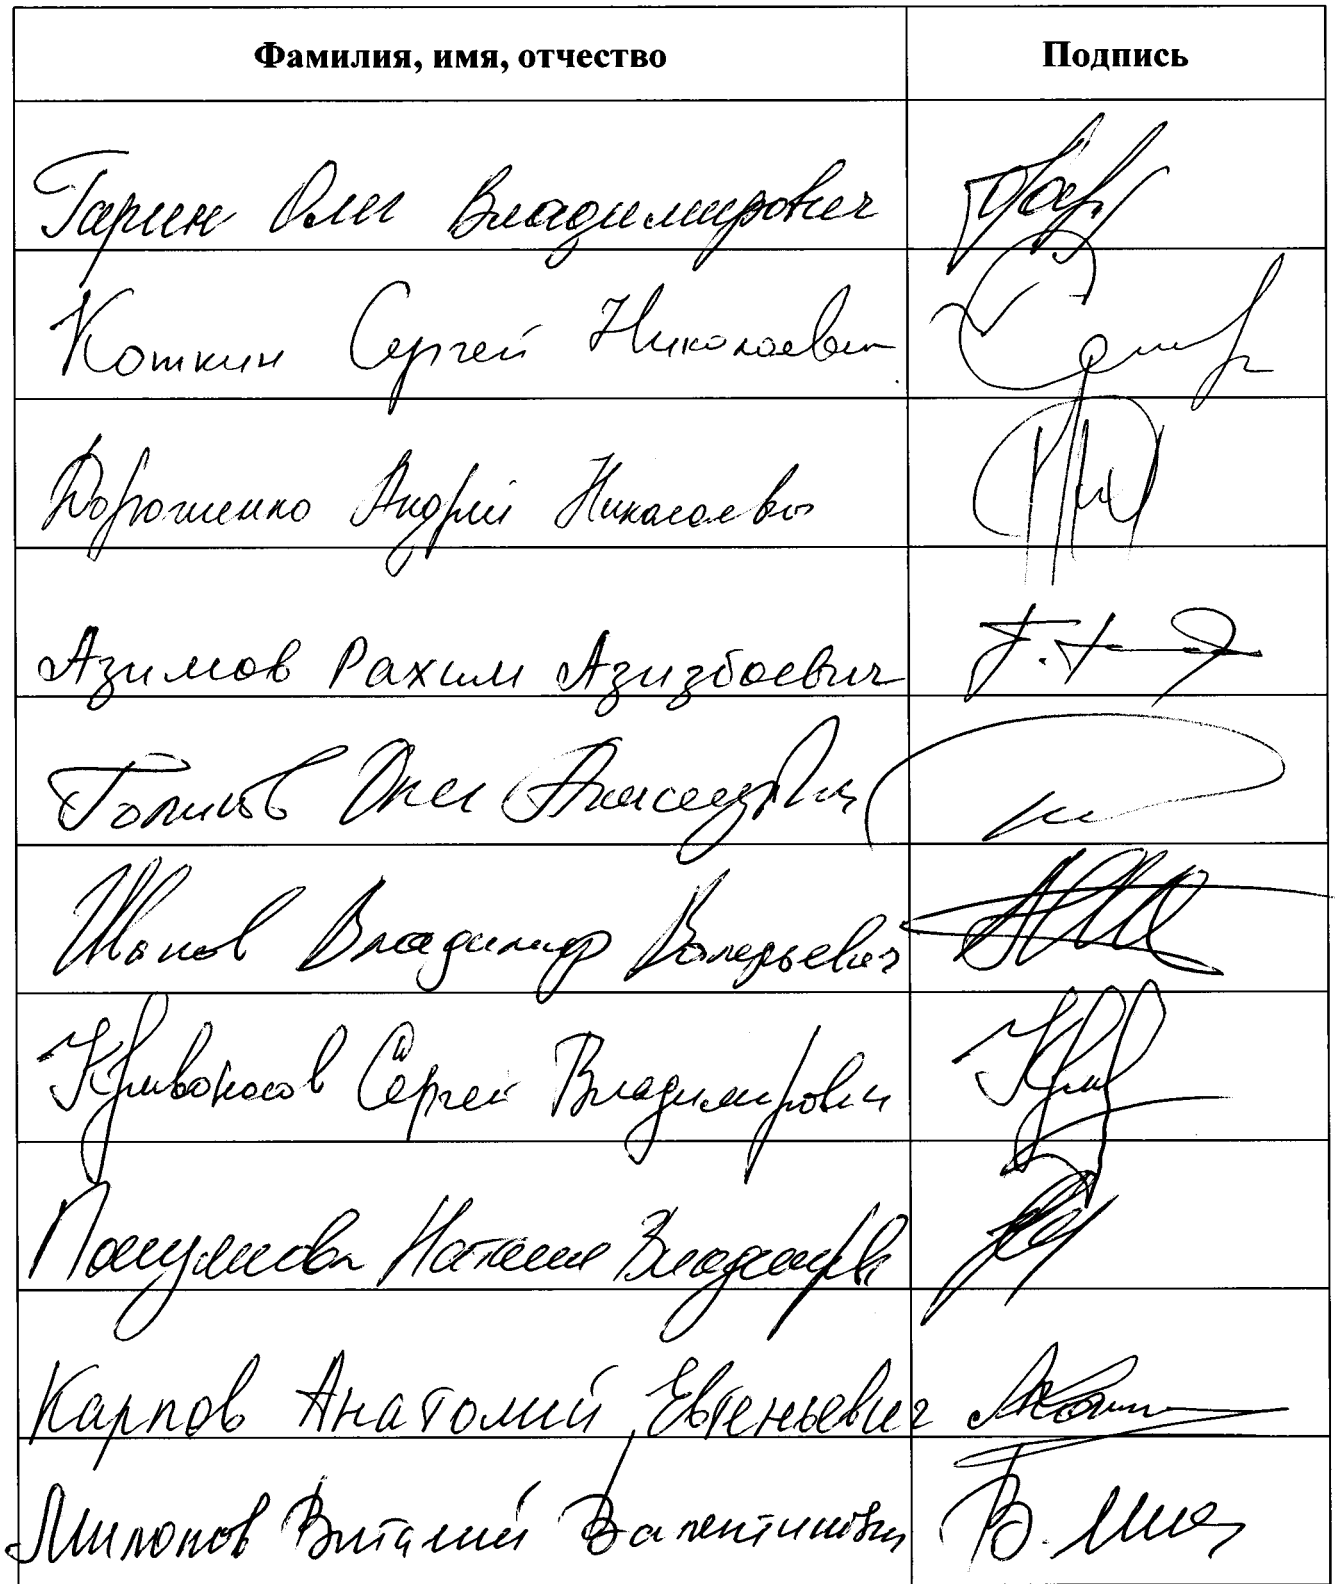 Фамилия, имя, отчество Подпись
Гарин Олег Владимирович
Кошкин Сергей Николаевич
Дорошенко Андрей Николаевич
Азимов Рахим Азизбоевич
Голиков Олег Алексеевич
Шапов Владимир Валерьевич
Кривоносов Сергей Владимирович
Наталья Владимировна
Карпов Анатолий Евгеньевич
Милонов Виталий Валентинович